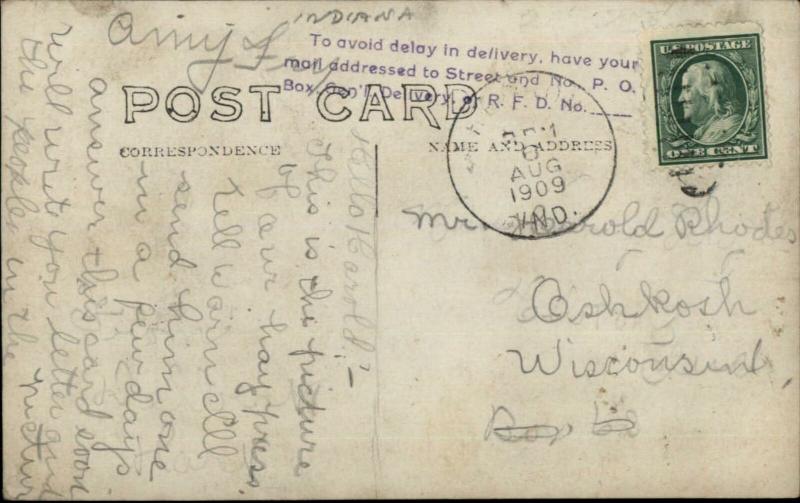 INDIANA
To avoid delay in delivery, have your
mail addressed to Street and No., P. O.
Box, Gen'l Delivery, or R. F. D. No.
POST CARD
CORRESPONDENCE
NAME AND ADDRESS
U.S. POSTAGE
ONE CENT
AUG
1909
IND.
Mr. Harold Rhodes
Oshkosh
Wisconsin
Box
Hello Harold!—
This is the picture
of our hay press.
Tell I'll
send him one
in a few days
answer this card soon
will write you letter and
the peoples in the picture
Amy